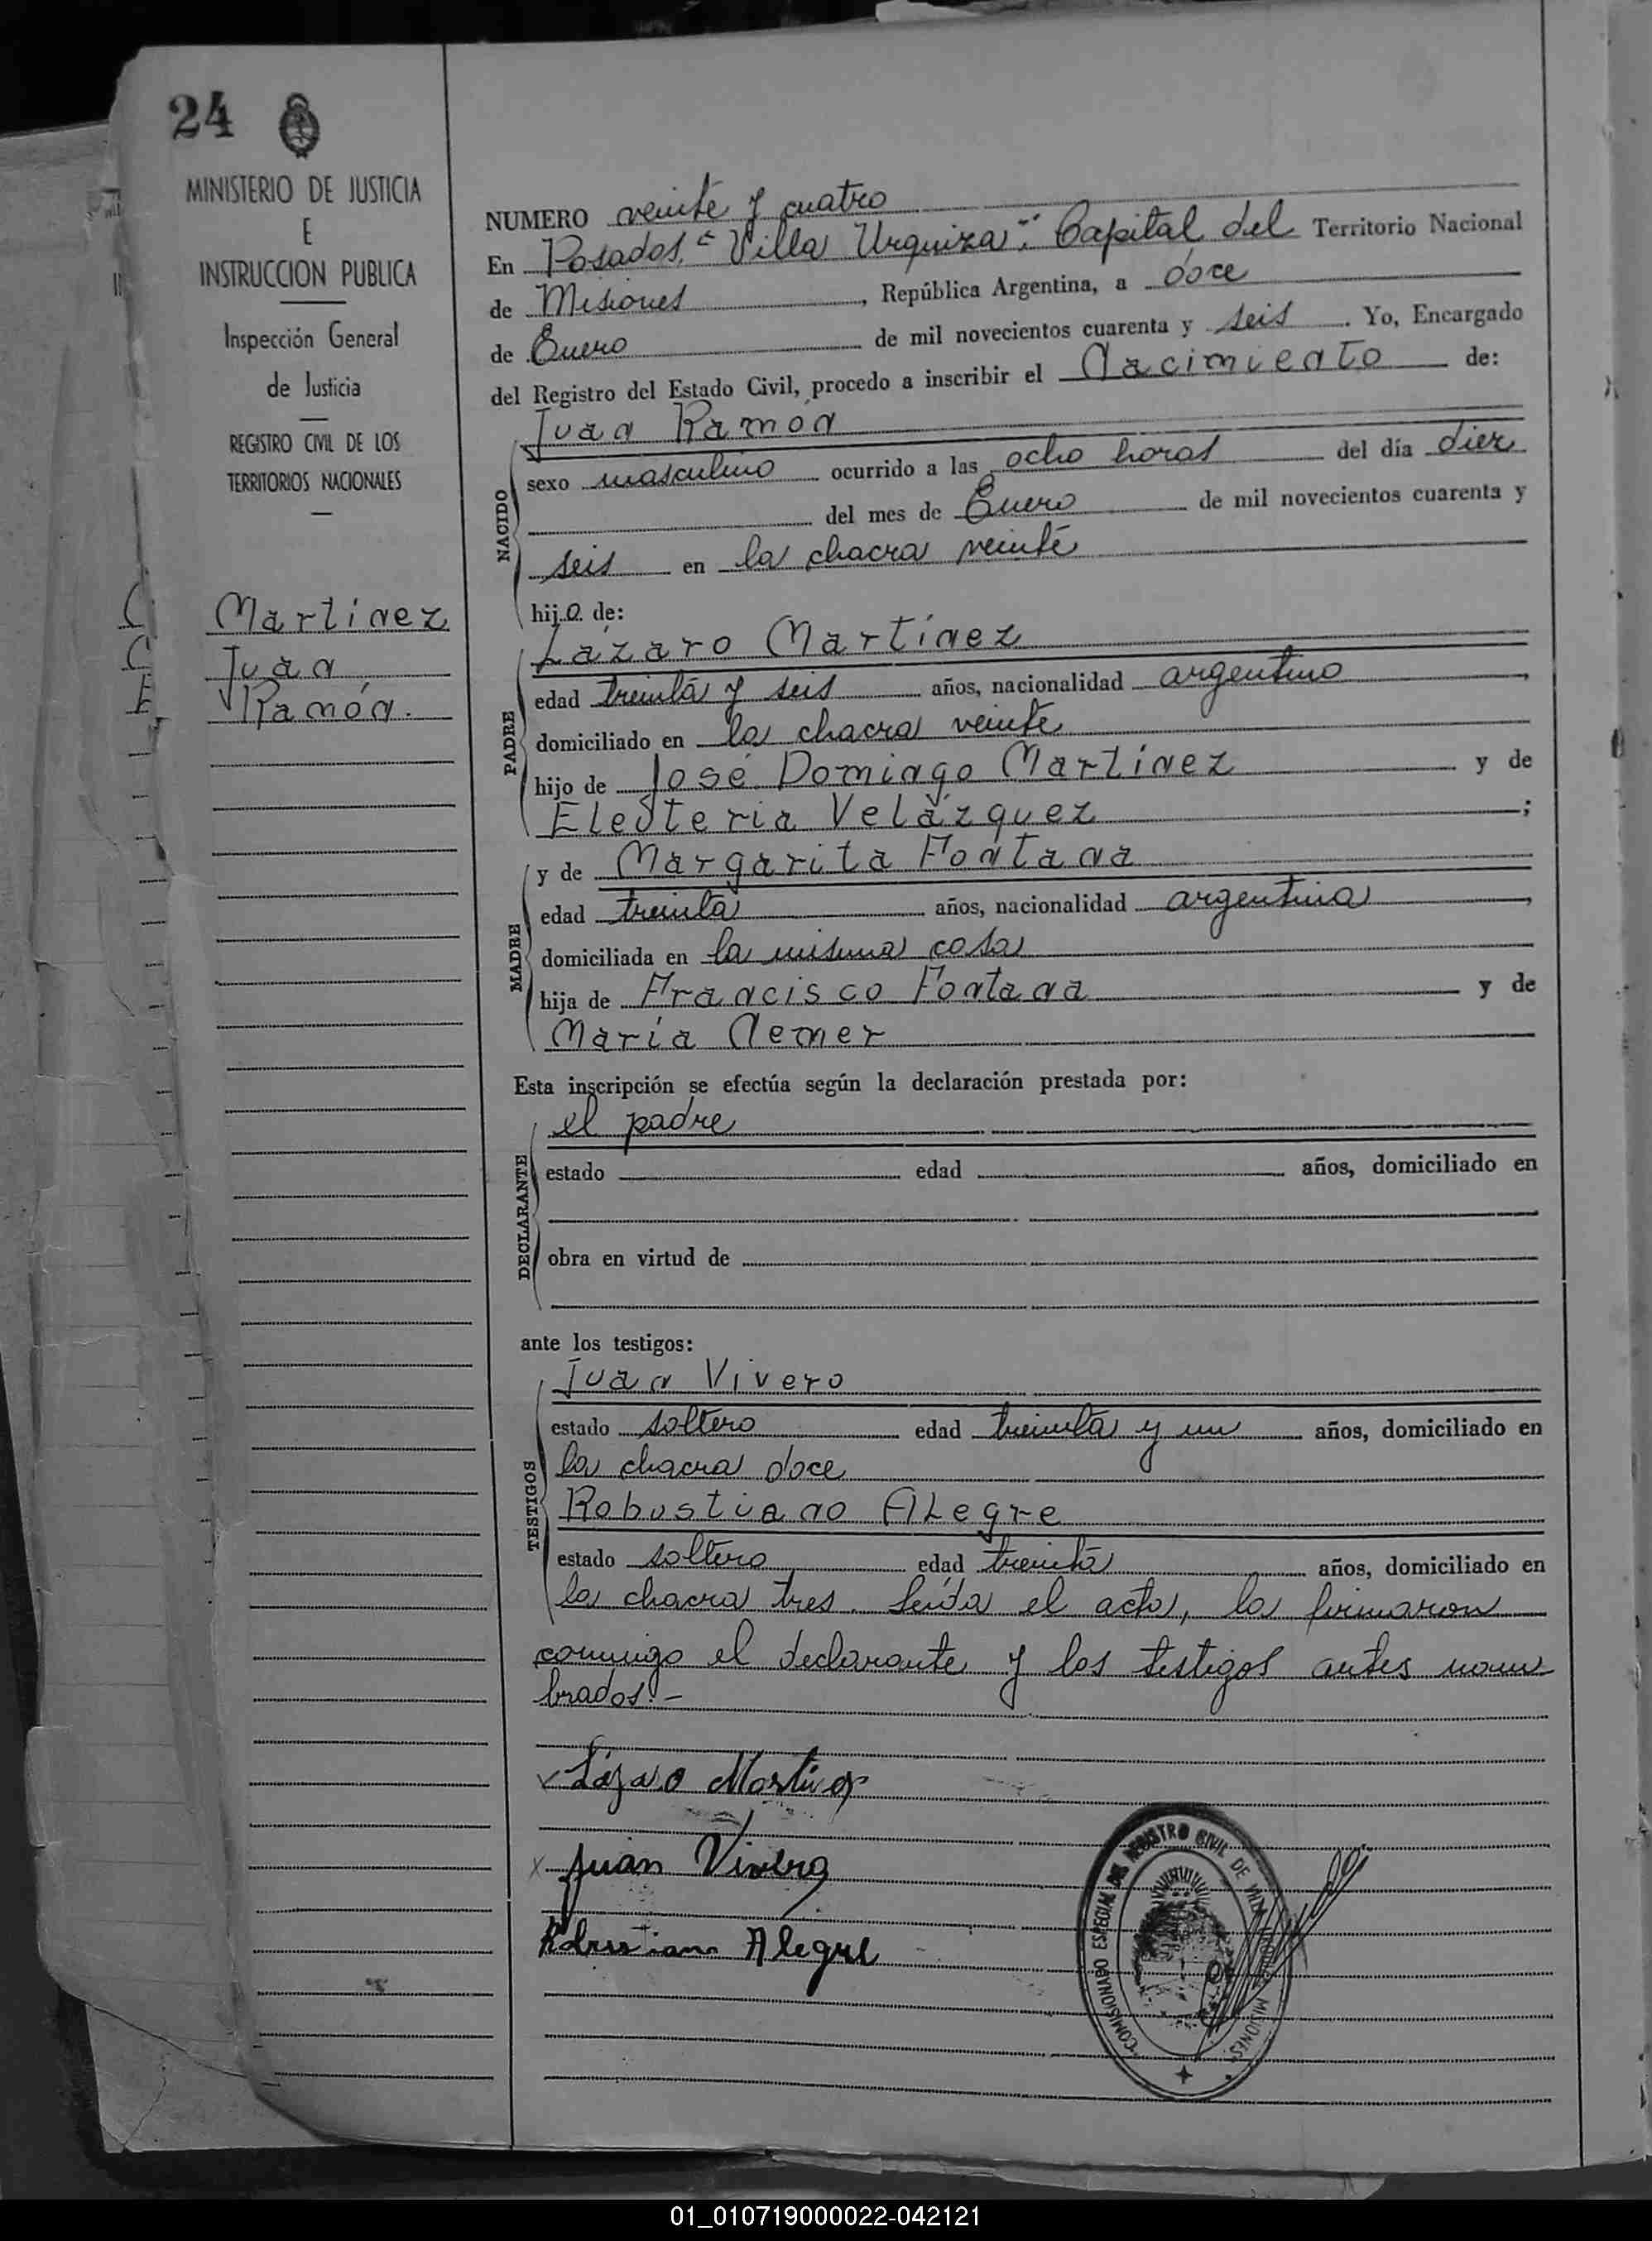 24
MINISTERIO DE JUSTICIA
E
INSTRUCCION PUBLICA
Inspección General
de Justicia
REGISTRO CIVIL DE LOS
TERRITORIOS NACIONALES
C Martínez
C Juan
E Ramón.
NUMERO veinte y cuatro
En Posadas, "Villa Urquiza": Capital del Territorio Nacional
de Misiones, República Argentina, a doce
de Enero de mil novecientos cuarenta y seis. Yo, Encargado
del Registro del Estado Civil, procedo a inscribir el Nacimiento de:
NACIDO
Juan Ramón
sexo masculino ocurrido a las ocho horas del día diez
del mes de Enero de mil novecientos cuarenta y
seis en la chacra veinte
hijo de:
PADRE
Lázaro Martínez
edad treinta y seis años, nacionalidad argentino,
domiciliado en la chacra veinte
hijo de José Domingo Martínez y de
Eleuteria Velázquez;
MADRE
y de Margarita Fontana
edad treinta años, nacionalidad argentina,
domiciliada en la misma casa
hija de Francisco Fontana y de
María Nemer
Esta inscripción se efectúa según la declaración prestada por:
DECLARANTE
el padre
estado edad años, domiciliado en
obra en virtud de
ante los testigos:
TESTIGOS
Juan Vivero
estado soltero edad treinta y un años, domiciliado en
la chacra doce
Robustiano Alegre
estado soltero edad treinta años, domiciliado en
la chacra tres. Leída el acta, la firmaron
conmigo el declarante y los testigos antes nom
brados.-
Lázaro Martinez
Juan Vivero
Alegre
COMISIONADO ESPECIAL DEL REGISTRO CIVIL DE VILLA MISIONES
01_010719000022-042121